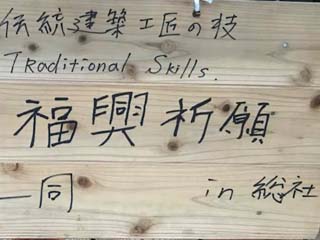 伝統建築工匠の技
Traditional Skills.
福興祈願
一同 in 総社